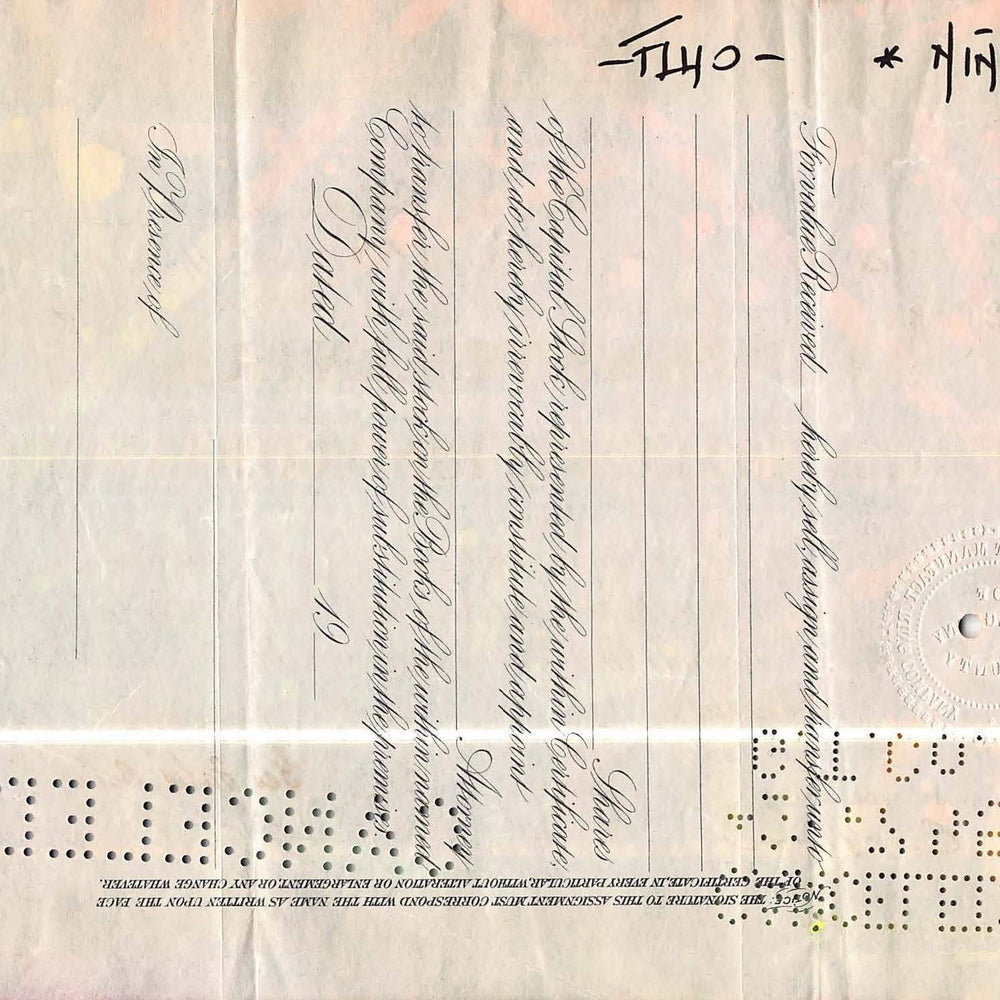 For value Received hereby sell, assign and transfer unto
Shares
of the Capital Stock represented by the within Certificate,
and do hereby irrevocably constitute and appoint
Attorney
to transfer the said stock on the Books of the within named
Company with full power of substitution in the premises.
Dated 19
In Presence of
NOTICE: THE SIGNATURE TO THIS ASSIGNMENT MUST CORRESPOND WITH THE NAME AS WRITTEN UPON THE FACE
OF THE CERTIFICATE, IN EVERY PARTICULAR, WITHOUT ALTERATION OR ENLARGEMENT, OR ANY CHANGE WHATEVER.
CANCELLED